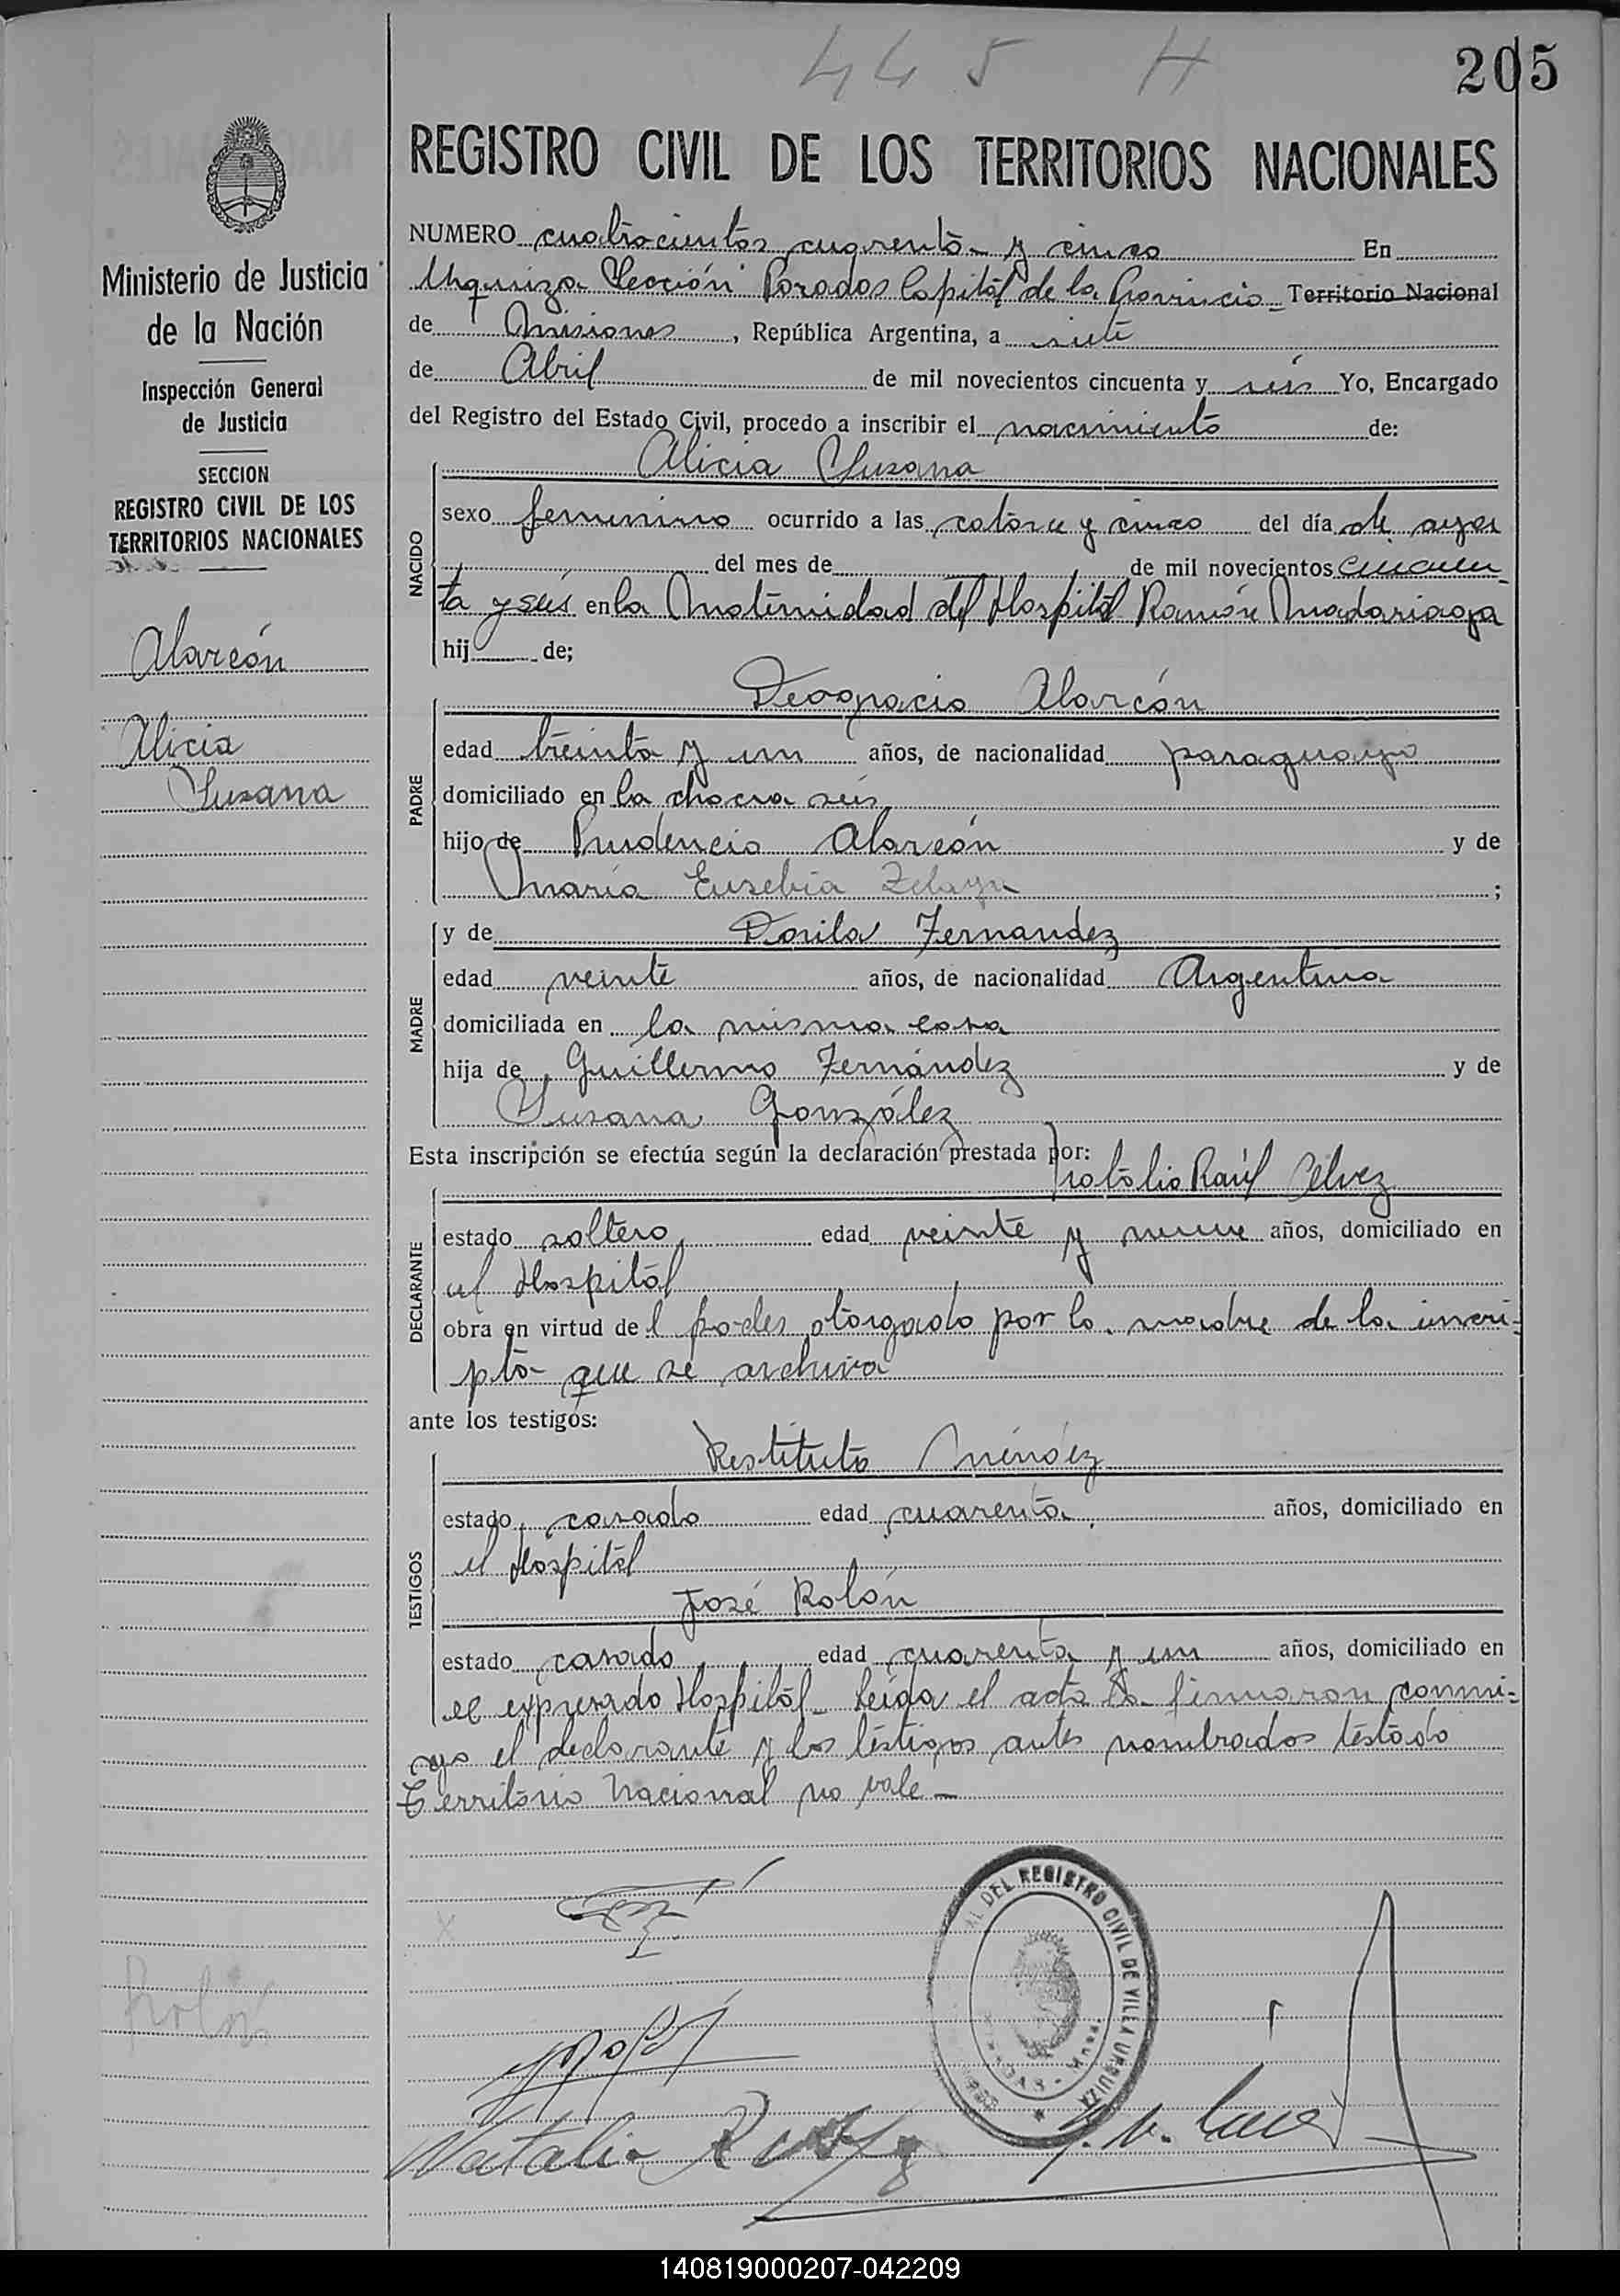 445 H
205
REGISTRO CIVIL DE LOS TERRITORIOS NACIONALES
Ministerio de Justicia
de la Nación
Inspección General
de Justicia
SECCION
REGISTRO CIVIL DE LOS
TERRITORIOS NACIONALES
Alarcón
Alicia
Susana
NUMERO cuatrocientos cuarenta y cinco En
Urquiza Sección Posadas Capital de la Provincia Territorio Nacional
de Misiones, República Argentina, a siete
de Abril de mil novecientos cincuenta y seis Yo, Encargado
del Registro del Estado Civil, procedo a inscribir el nacimiento de:
Alicia Susana
NACIDO
sexo femenino ocurrido a las catorce y cinco del día de ayer
del mes de de mil novecientos cincuen-
ta y seis en la Maternidad del Hospital Ramón Madariaga
hij de;
Deogracio Alarcón
PADRE
edad treinta y un años, de nacionalidad paraguayo
domiciliado en la chacra seis
hijo de Prudencio Alarcón y de
María Eusebia Zelaya ;
y de Dorila Fernandez
MADRE
edad veinte años, de nacionalidad Argentina
domiciliada en la misma casa
hija de Guillermo Fernández y de
Susana González
Esta inscripción se efectúa según la declaración prestada por:
Natalio Raúl
DECLARANTE
estado soltero edad veinte y nueve años, domiciliado en
el Hospital
obra en virtud de l poder otorgado por la madre de la inscri-
pta que se archiva
ante los testigos:
Restituto Méndez
TESTIGOS
estado casado edad cuarenta años, domiciliado en
el Hospital
José Rolón
estado casado edad cuarenta y un años, domiciliado en
el expresado Hospital Leída el acta la firmaron conmi-
go el declarante y los testigos antes nombrados testado
Territorio Nacional no vale -
DEL REGISTRO CIVIL DE VILLA URQUIZA
Rolón
Natalio
140819000207-042209